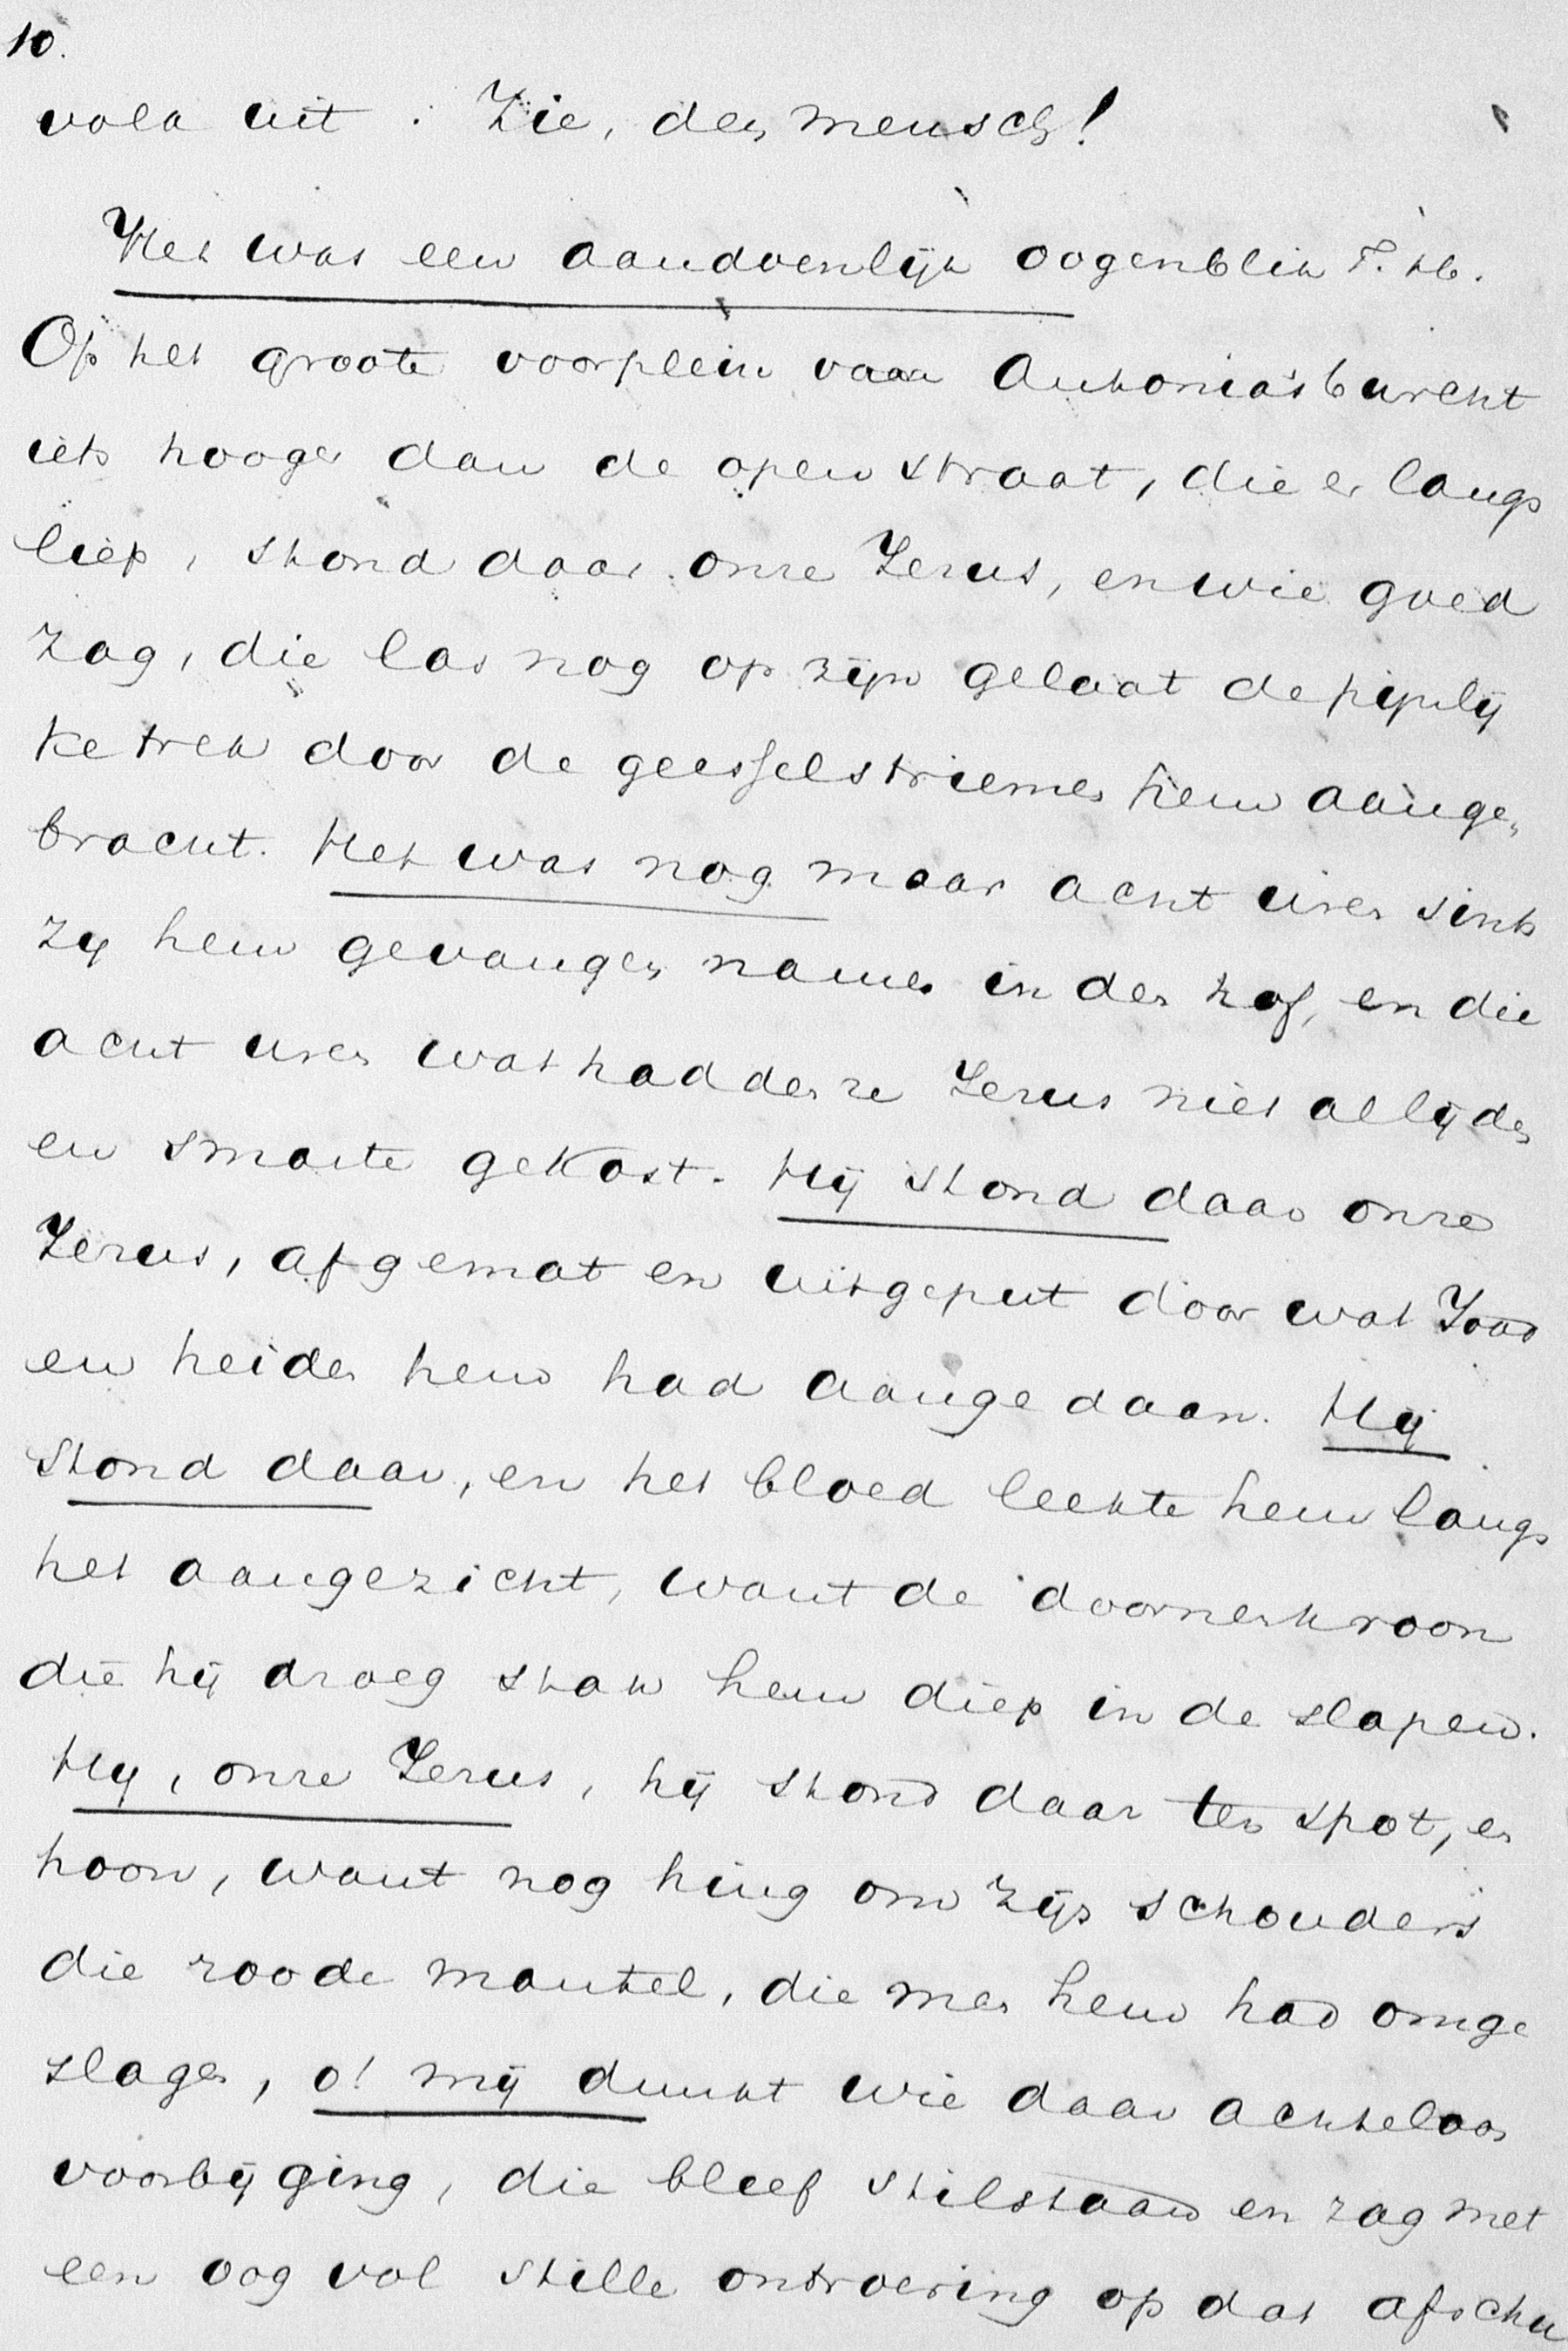 10.
volk uit : Zie, den mensch!
Het was een aandoenlijk oogenblik T. H.
Op het groote voorplein van Antonia's burcht
iets hooger dan de open straat, die er langs
liep, stond daar onze Jezus, en wie goed
zag, die las nog op zijn gelaat de pijnlij
ke trek door de geesselstriemen hem aange„
bracht. Het was nog maar acht uren sinds
zij hem gevangen namen in den hof, en die
acht uren wat hadden ze Jezus niet al lijden
en smarte gekost. Hij stond daar onze
Jezus, afgemat en uitgeput door wat Jood
en heiden hem had aangedaan. Hij
stond daar, en het bloed leekte hem langs
het aangezicht, want de doornenkroon
die hij droeg stak hem diep in de slapen.
Hij, onze Jezus, hij stond daar ten spot, en
hoon, want nog hing om zijn schouders
die roode mantel, die men hem had omge
slagen, o! mij dunkt wie daar achteloos
voorbij ging, die bleef stilstaan en zag met
een oog vol stille ontroering op dat afschu